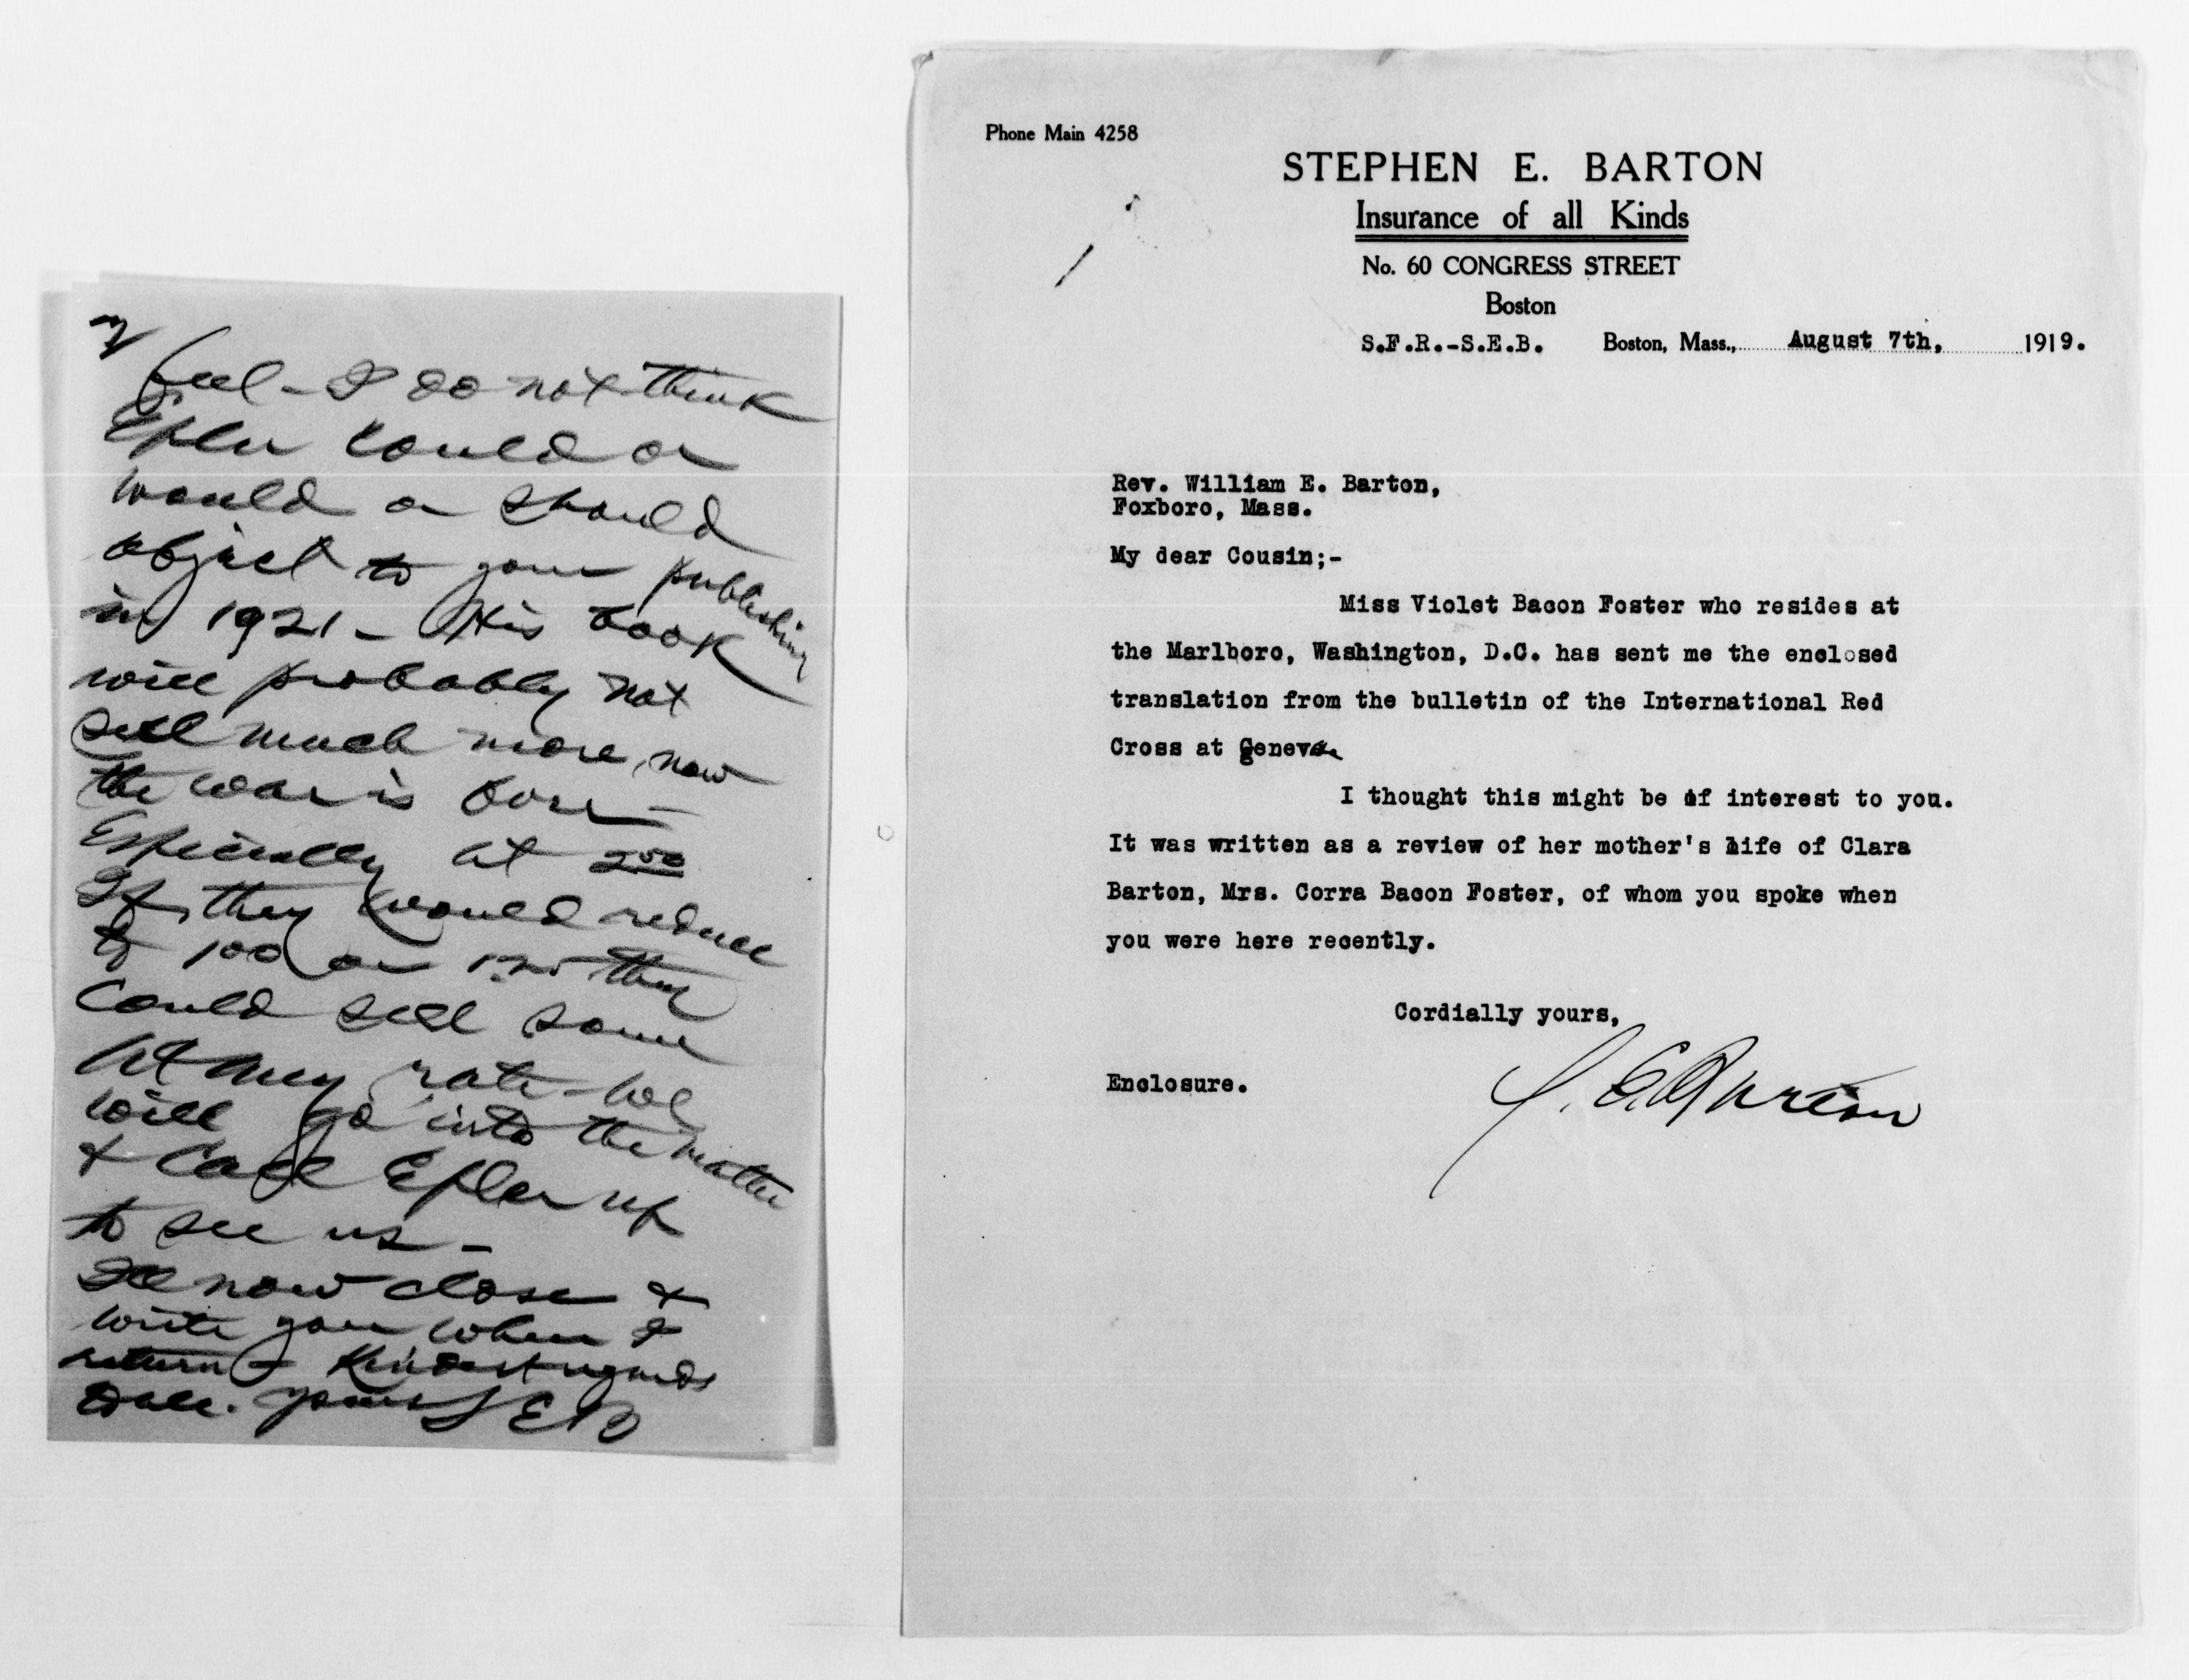 feel - I do not think
Epler could or
would or should
object to your publishing
in 1921 - His book
will probably not
sell much more, now
the war is over -
Especially at 2.50
If they would reduce
to 100 or 1.25 they
could sell some
At any rate - we
will go into the matter
& call Epler up
to see us -
I'll now close &
write you when I
return - Kindest regards
to all. Yours S E B
Phone Main 4258
STEPHEN E. BARTON
Insurance of all Kinds
No. 60 CONGRESS STREET
Boston
S.F.R.-S.E.B. Boston, Mass., August 7th, 1919.
Rev. William E. Barton,
Foxboro, Mass.
My dear Cousin;-
Miss Violet Bacon Foster who resides at
the Marlboro, Washington, D.C. has sent me the enclosed
translation from the bulletin of the International Red
Cross at Geneva
I thought this might be of interest to you.
It was written as a review of her mother's life of Clara
Barton, Mrs. Corra Bacon Foster, of whom you spoke when
you were here recently.
Cordially yours,
Enclosure.
S. E. Barton